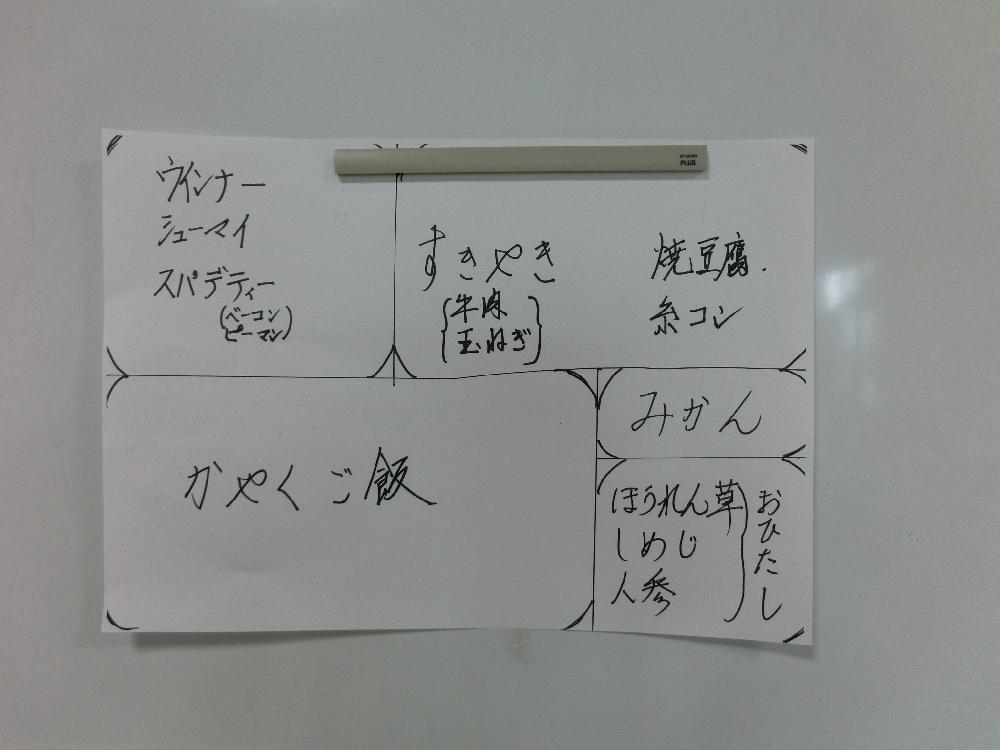 ウインナー
シューマイ
スパデティー
(ベーコン
ピーマン)
PLUS
すきやき
牛肉
玉ねぎ
焼豆腐.
糸コン
かやくご飯
みかん
ほうれん草
しめじ
人参
おひたし